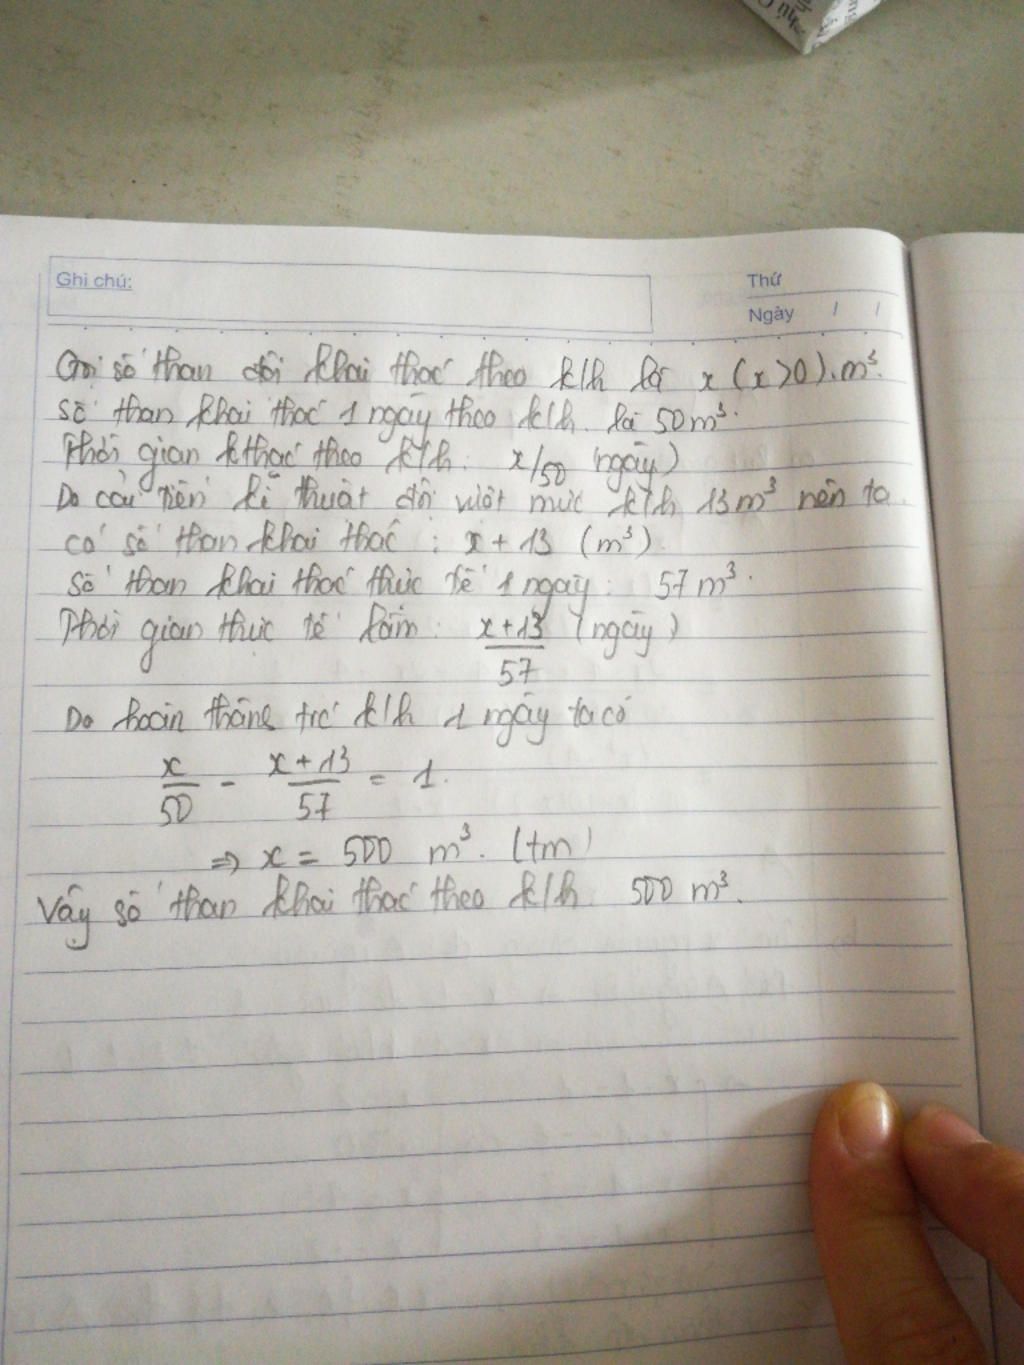 Ghi chú:
Thứ
Ngày / /
Gọi số than đội khai thác theo k/h là x (x>0).m³.
Số than khai thác 1 ngày theo k/h. là 50m³.
Thời gian kthác theo k/h: x/50 (ngày)
Do cải tiến kĩ thuật đội vượt mức k/h 13m³ nên ta
có số than khai thác : x + 13 (m³).
Số than khai thác thực tế 1 ngày: 57m³.
Thời gian thực tế làm: x+13/57 (ngày)
Do hoàn thành trc k/h 1 ngày ta có
x/50 - x+13/57 = 1.
⇒ x = 500 m³. (tm)
Vậy số than khai thác theo k/h. 500 m³.